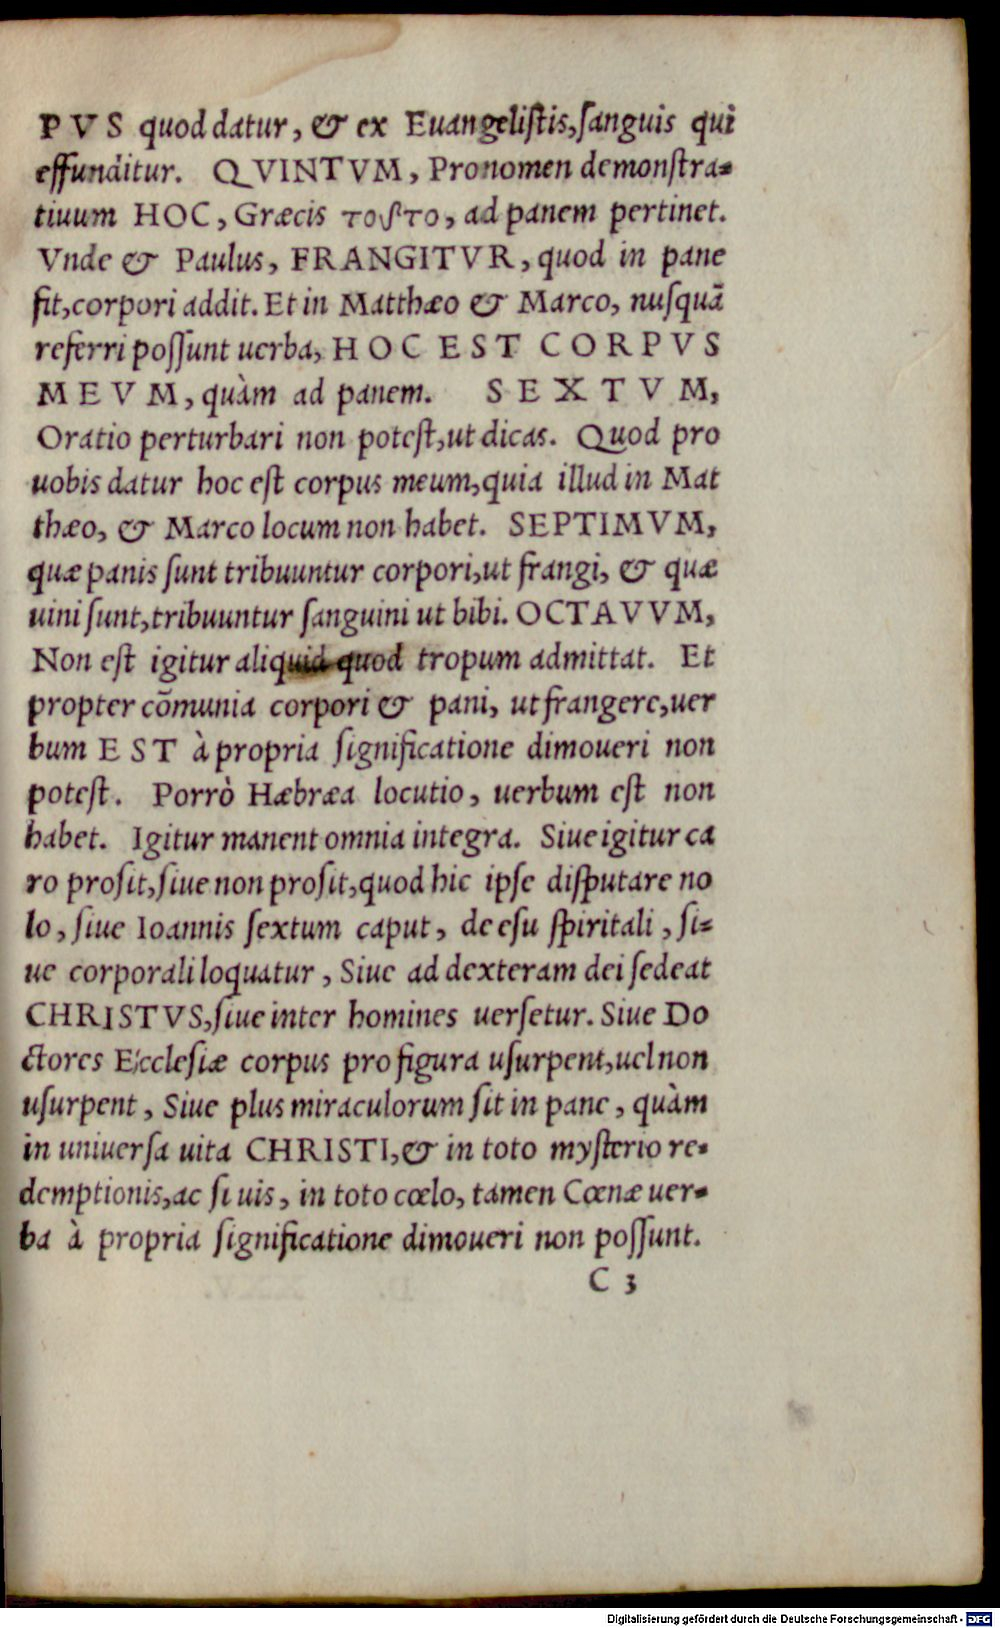 PVS quod datur, & ex Euangeliſtis, ſanguis qui
effunditur. QVINTVM, Pronomen demonſtra-
tiuum HOC, Græcis τοῦτο, ad panem pertinet.
Vnde & Paulus, FRANGITVR, quod in pane
fit, corpori addit. Et in Matthæo & Marco, nuſquã
referri poſſunt uerba, HOC EST CORPVS
MEVM, quàm ad panem. SEXTVM,
Oratio perturbari non poteſt, ut dicas. Quod pro
uobis datur hoc eſt corpus meum, quia illud in Mat
thæo, & Marco locum non habet. SEPTIMVM,
quæ panis ſunt tribuuntur corpori, ut frangi, & quæ
uini ſunt, tribuuntur ſanguini ut bibi. OCTAVVM,
Non eſt igitur aliquid quod tropum admittat. Et
propter cõmunia corpori & pani, ut frangere, uer
bum EST à propria ſignificatione dimoueri non
poteſt. Porrò Hæbræa locutio, uerbum eſt non
habet. Igitur manent omnia integra. Siue igitur ca
ro proſit, ſiue non proſit, quod hic ipſe diſputare no
lo, ſiue Ioannis ſextum caput, de eſu ſpiritali, ſi-
ue corporali loquatur, Siue ad dexteram dei ſedeat
CHRISTVS, ſiue inter homines uerſetur. Siue Do
ctores Eccleſiæ corpus pro figura uſurpent, uel non
uſurpent, Siue plus miraculorum ſit in pane, quàm
in uniuerſa uita CHRISTI, & in toto myſterio re-
demptionis, ac ſi uis, in toto cœlo, tamen Cœnæ uer-
ba à propria ſignificatione dimoueri non poſſunt.
C 3
Digitalisierung gefördert durch die Deutsche Forschungsgemeinschaft - DFG